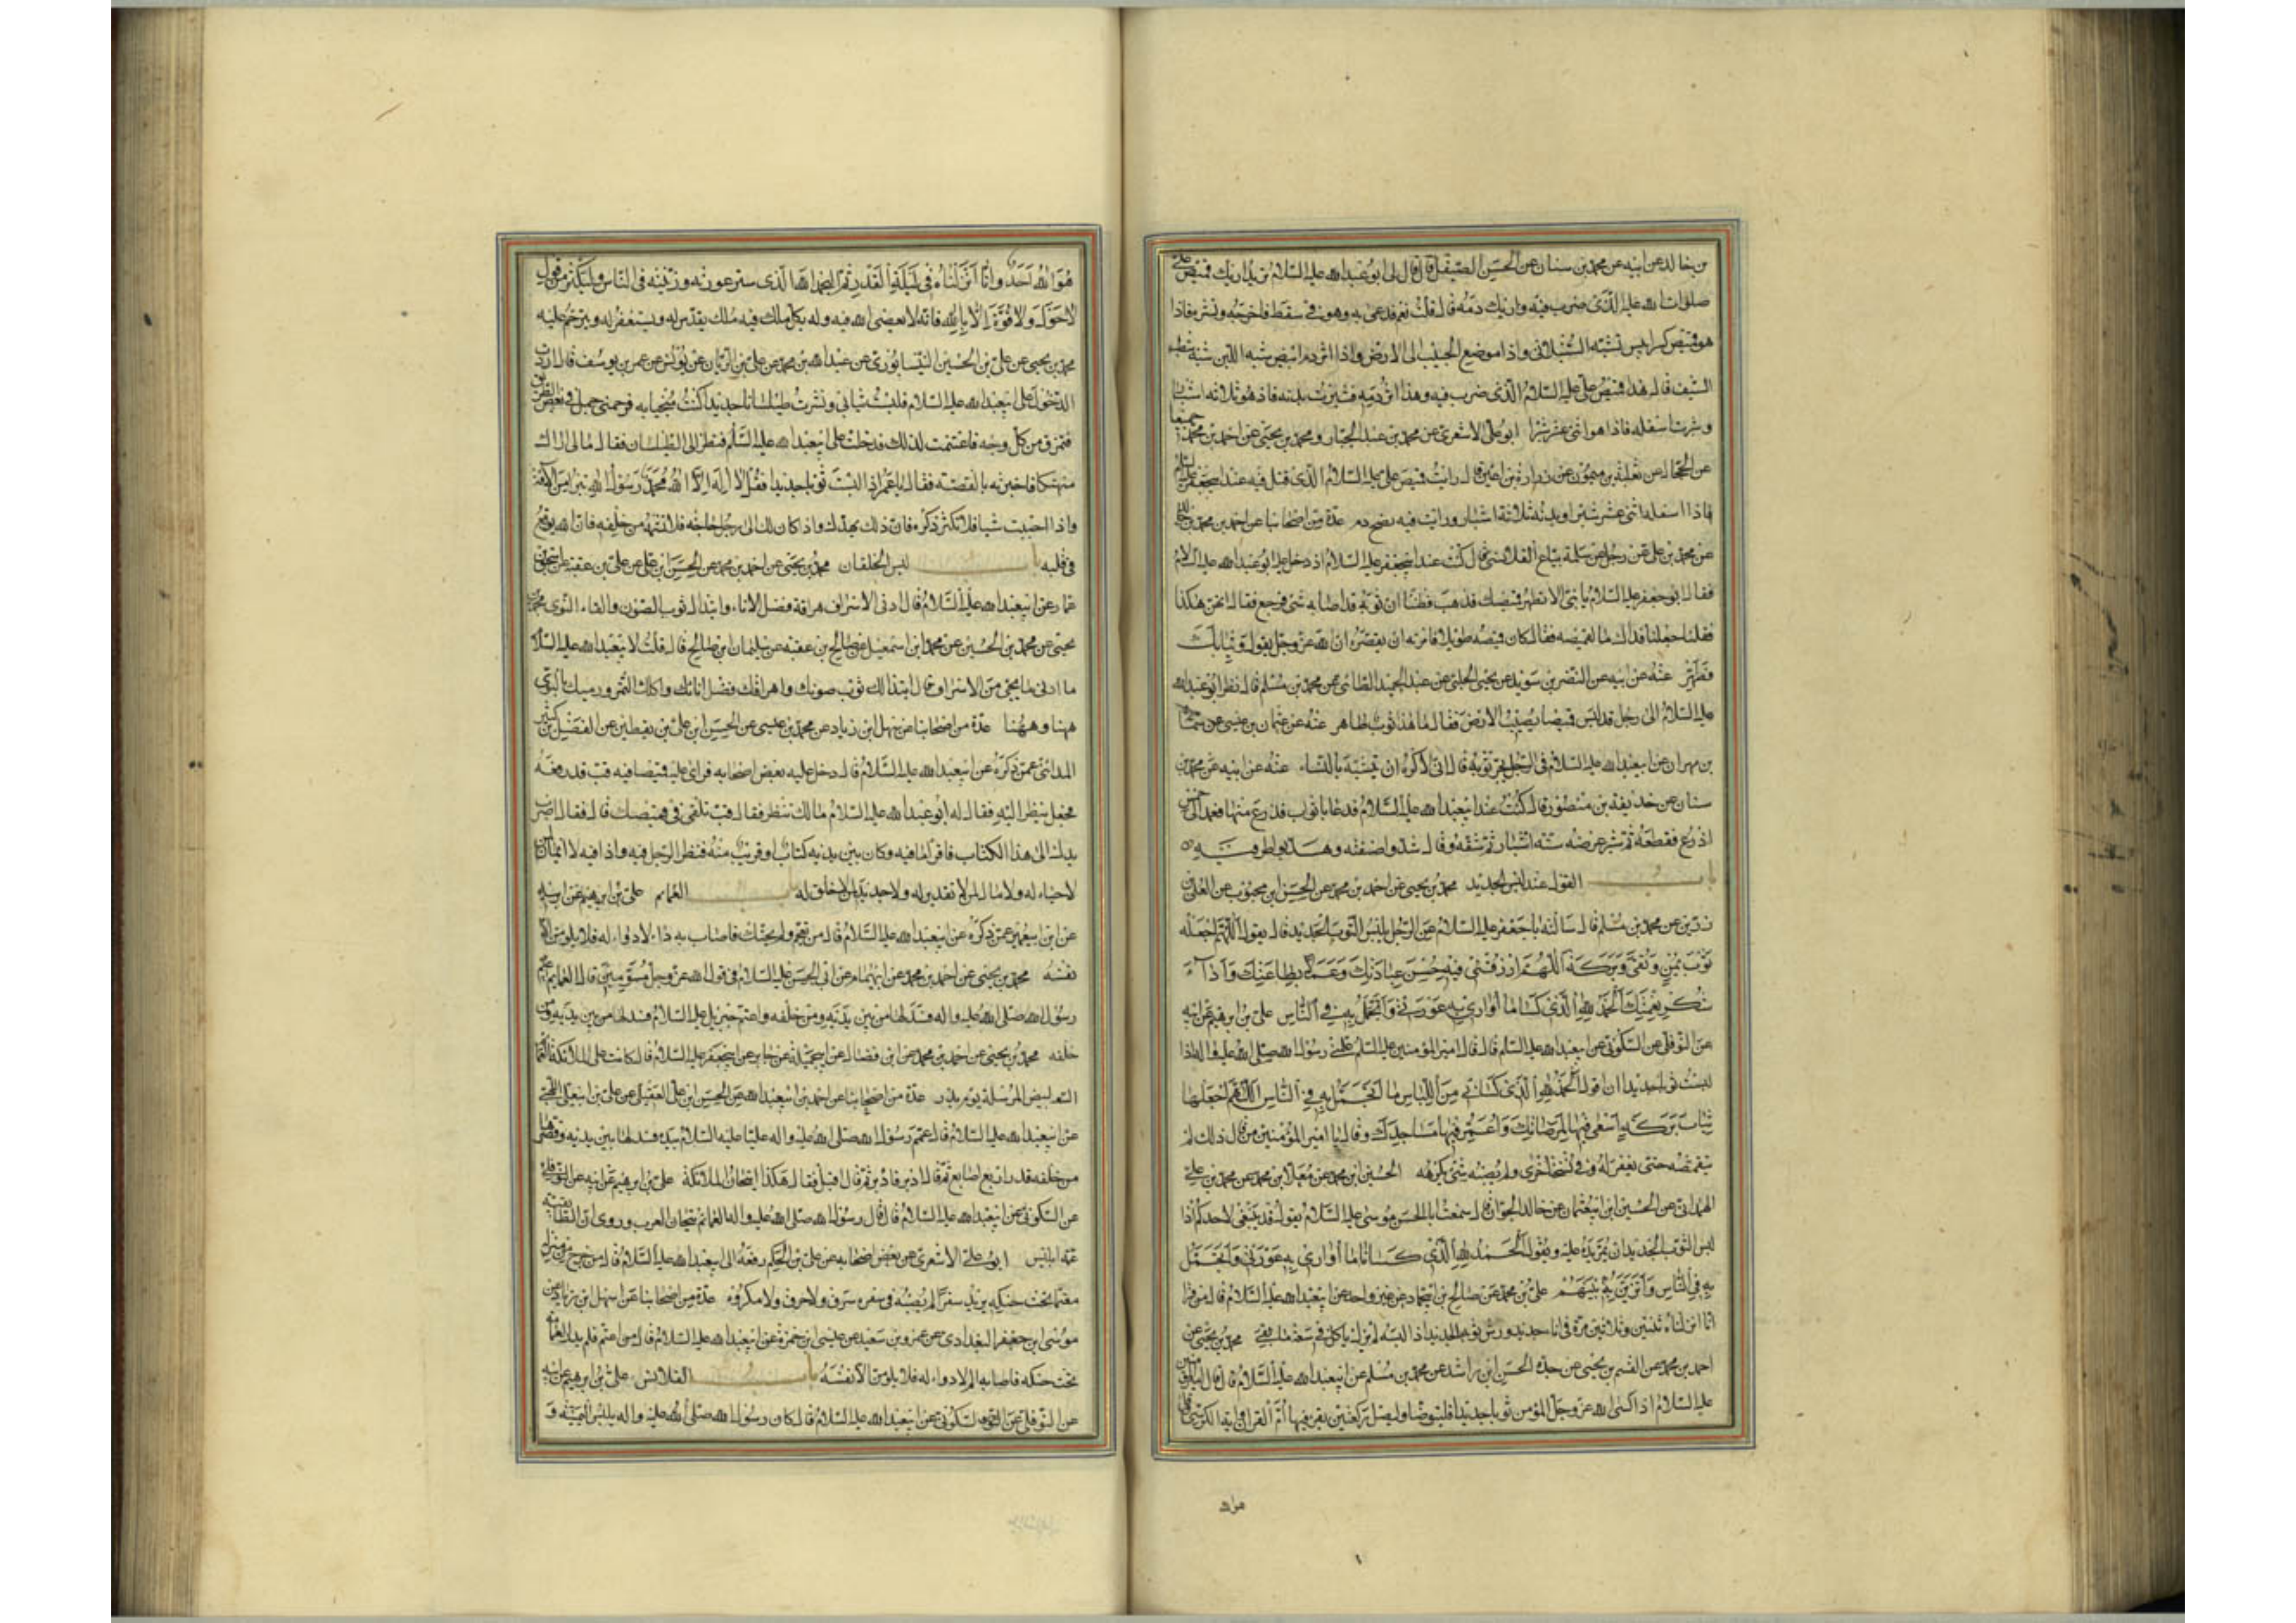 بن خالد عن ابيه عن محمد بن سنان عن الحسن الصيقل قال قال لى ابو عبد الله عليه السلام تريد اريك قميص على
صلوات الله عليه الذى ضرب فيه واريك دمه قال قلت نعم فدعى به وهو فى سفط فاخرجه ونشره فاذا
هو قميص كرابيس يشبه السنبلانى واذا موضع الجيب الى الارض واذا اثر دم ابيض شبه اللبن شبه شطب
السيف قال هذا قميص على عليه السلام الذى ضرب فيه وهذا اثر دمه فشبرت بدنه فاذا هو ثلاثة اشبار
وشبرت اسفله فاذا هو اثنى عشر شبرا ابو على الاشعرى عن محمد بن عبد الجبار ومحمد بن يحيى عن احمد بن محمد جميعا
عن الحجال عن ثعلبة بن ميمون عن زرارة بن اعين قال رايت قميص على عليه السلام الذى قتل فيه عند ابيجعفر عليه السلام
فاذا اسفله اثنى عشر شبرا وبدنه ثلاثة اشبار ورايت فيه نضح دم عدة من اصحابنا عن احمد بن محمد بن خالد
عن محمد بن على عن رجل عن سلمة بياع القلانس قال كنت عند ابيجعفر عليه السلام اذ دخل عليه ابو عبد الله عليه السلام
فقال ابو جعفر عليه السلام يا بنى الا تطهر قميصك فذهب فظننا ان ثوبه قد اصابه شئ فرجع فقال انهن هكذا
فقلنا جعلنا فداك ما لقميصه فقال كان قميصه طويلا فامرته ان يقصره ان الله عز وجل يقول وثيابك
فطهر عنه عن ابيه عن النضر بن سويد عن يحيى الحلبى عن عبد الحميد الطائى عن محمد بن مسلم قال نظر ابو عبد الله
عليه السلام الى رجل قد لبس قميصا يصيب الارض فقال ما هذا ثوب طاهر عنه عن عثمان بن عيسى عن سماعة
بن مهران عن ابيعبد الله عليه السلام فى الرجل يجر ثوبه قال انى لاكره ان يتشبه بالنساء عنه عن ابيه عن محمد بن
سنان عن حذيفة بن منصور قال كنت عند ابيعبد الله عليه السلام فدعا باثواب فذرع منها فعمد الى خمس
اذرع فقطعها ثم شبر عرضه ستة اشبار ثم شقه وقال شدوا ضفته وهدبوا طرفيه
باب القول عند لبس الجديد محمد بن يحيى عن احمد بن محمد عن الحسن ابن محبوب عن العلاء بن
رزين عن محمد بن مسلم قال سالت ابا جعفر عليه السلام عن الرجل يلبس الثوب الجديد قال يقول اللهم اجعله
ثوب يمن وتقى وبركة اللهم ارزقنى فيه حسن عبادتك وعملا بطاعتك واداء
شكر نعمتك الحمد لله الذى كسانا ما اوارى به عورتى واتجمل به فى الناس على بن ابرهيم عن ابيه
عن النوفلى عن السكونى عن ابيعبد الله عليه السلم قال قال امير المؤمنين عليه السلم علمنى رسول الله صلى الله عليه واله اذا
لبست ثوبا جديدا ان اقول الحمد لله الذى كسانى من اللباس ما اتجمل به فى الناس اللهم اجعلها
ثياب بركة اسعى فيها لمرضاتك واعمر فيها مساجدك وقال يا امير المؤمنين من قال ذلك لم
يتقمصه حتى يغفر له وفى نسخة اخرى ولم يصبه شئ يكرهه الحسين ابن محمد عن معلا بن محمد عن محمد بن على
الهمدانى عن الحسين ابن ابيعثمان عن خالد الجوان قال سمعت ابا الحسن موسى عليه السلام يقول قد ينبغى لاحدكم اذا
لبس الثوب الجديد ان يمر يده عليه ويقول الحمد لله الذى كسانا ما اوارى به عورتى واتجمل
به فى الناس واتزين به بينهم على بن محمد عن صالح بن ابيحماد عن غير واحد عن ابيعبد الله عليه السلام قال من قرا
انا انزلناه ثنتين وثلاثين مرة فى انا جديد ورش ثوبه الجديد اذا لبسه لم يزل ياكل فى سعة ما بقى محمد بن يحيى عن
احمد بن محمد عن القسم بن يحيى عن جده الحسن ابن راشد عن محمد بن مسلم عن ابيعبد الله عليه السلام قال قال امير المؤمنين
عليه السلام اذا كسى الله عز وجل المؤمن ثوبا جديدا فليتوضا وليصل ركعتين يقرء فيهما ام القران واية الكرسى وقل
هو الله احد وانا انزلناه فى ليلة القدر ثم ليحمد الله الذى ستر عورته وزينه فى الناس وليكثر من قول
لا حول ولا قوة الا بالله فانه لا يعصى الله فيه وله بكل سلك فيه ملك يقدس له ويستغفر له ويترحم عليه
محمد بن يحيى عن على بن الحسين النيسابورى عن عبد الله بن محمد عن على بن الريان عن يونس عن عمر بن يوسف قال اردت
الدخول على ابيعبد الله عليه السلام فلبست ثيابى ونشرت طيلسانا جديدا كنت معجبا به فزحمنى جمل فى بعض الطريق
فتمزق من كل وجه فاغتممت لذلك فدخلت على ابيعبد الله عليه السلم فنظر الى الطيلسان فقال ما لى اراك
منهتكا فاخبرته بالقصة فقال يا عمر اذا لبست ثوبا جديدا فقل لا اله الا الله محمد رسول الله تبرا من الافة
واذا احببت شيا فلا تكثر ذكره فان ذلك يهدك واذا كان لك الى رجل حاجة فلا تشتمه من خلفه فان الله يوقع
فى قلبه باب لبس الخلقان محمد بن يحيى عن احمد بن محمد عن الحسن ابن على عن على بن عقبة عن اسحق بن
عمار عن ابيعبد الله عليه السلام قال ادنى الاسراف هراقة فضل الاناء وابتذال ثوب الصون والقاء النوى محمد بن
يحيى عن محمد بن الحسين عن محمد ابن اسمعيل عن صالح بن عقبة عن سليمان ابن صالح قال قلت لابيعبد الله عليه السلام
ما ادنى ما يجئ من الاسراف قال ابتذالك ثوب صونك واهراقك فضل انائك واكلك التمر ورميك بالنوى
ههنا وههنا عدة من اصحابنا عن سهل ابن زياد عن محمد بن عيسى عن الحسن ابن على بن يقطين عن الفضل بن كثير
المدائنى عمن ذكره عن ابيعبد الله عليه السلام قال دخل عليه بعض اصحابه فراى عليه قميصا فيه قب قد رقعه
فجعل ينظر اليه فقال له ابو عبد الله عليه السلام مالك تنظر فقال قب تلقى فى قميصك قال فقال اضرب
يدك الى هذا الكتاب فاقرا ما فيه وكان بين يديه كتاب او قريب منه فنظر الرجل فيه واذا فيه لا ايمان لمن
لا حياء له ولا مال لمن لا تقدير له ولا جديد لمن لا خلق له باب العمائم على بن ابرهيم عن ابيه
عن ابن ابيعمير عمن ذكره عن ابيعبد الله عليه السلام قال من تعمم ولم يحنك فاصاب به داء لا دواء له فلا يلومن الا
نفسه محمد بن يحيى عن احمد بن محمد عن ابيهمام عن ابى الحسن عليه السلام فى قول الله عز وجل مسومين قال العمائم اعتم
رسول الله صلى الله عليه واله فسدلها من بين يديه ومن خلفه واعتم جبرئيل عليه السلام فسدلها من بين يديه ومن
خلفه محمد بن يحيى عن احمد بن محمد عن ابن فضال عن ابيجميلة عن جابر عن ابيجعفر عليه السلام قال كانت على الملائكة العمائم
البيض المرسلة يوم بدر عدة من اصحابنا عن احمد بن ابيعبد الله عن الحسن ابن على العقيلى عن على بن ابيعلى اللهبى
عن ابيعبد الله عليه السلام قال عمم رسول الله صلى الله عليه واله عليا عليه السلام بيده فسدلها بين يديه وقصرها
من خلفه قدر اربع اصابع ثم قال ادبر فادبر ثم قال اقبل فاقبل فقال هكذا تيجان الملائكة على بن ابرهيم عن ابيه عن النوفلى
عن السكونى عن ابيعبد الله عليه السلام قال قال رسول الله صلى الله عليه واله العمائم تيجان العرب وروى ان الطابقية
عمة ابليس ابو على الاشعرى عن بعض اصحابه عن على بن الحكم رفعه الى ابيعبد الله عليه السلام قال من خرج من منزله
معتما تحت حنكه يريد سفرا لم يصبه فى سفره سرق ولا حرق ولا مكروه عدة من اصحابنا عن سهل ابن زياد عن
موسى ابن جعفر البغدادى عن عمرو بن سعيد عن عيسى ابن حمزة عن ابيعبد الله عليه السلام قال من اعتم فلم يدر العمامة
تحت حنكه فاصابه الم لا دواء له فلا يلومن الا نفسه باب القلانس على بن ابرهيم عن ابيه
عن النوفلى عن السكونى عن ابيعبد الله عليه السلام قال كان رسول الله صلى الله عليه واله يلبس اليمنية و